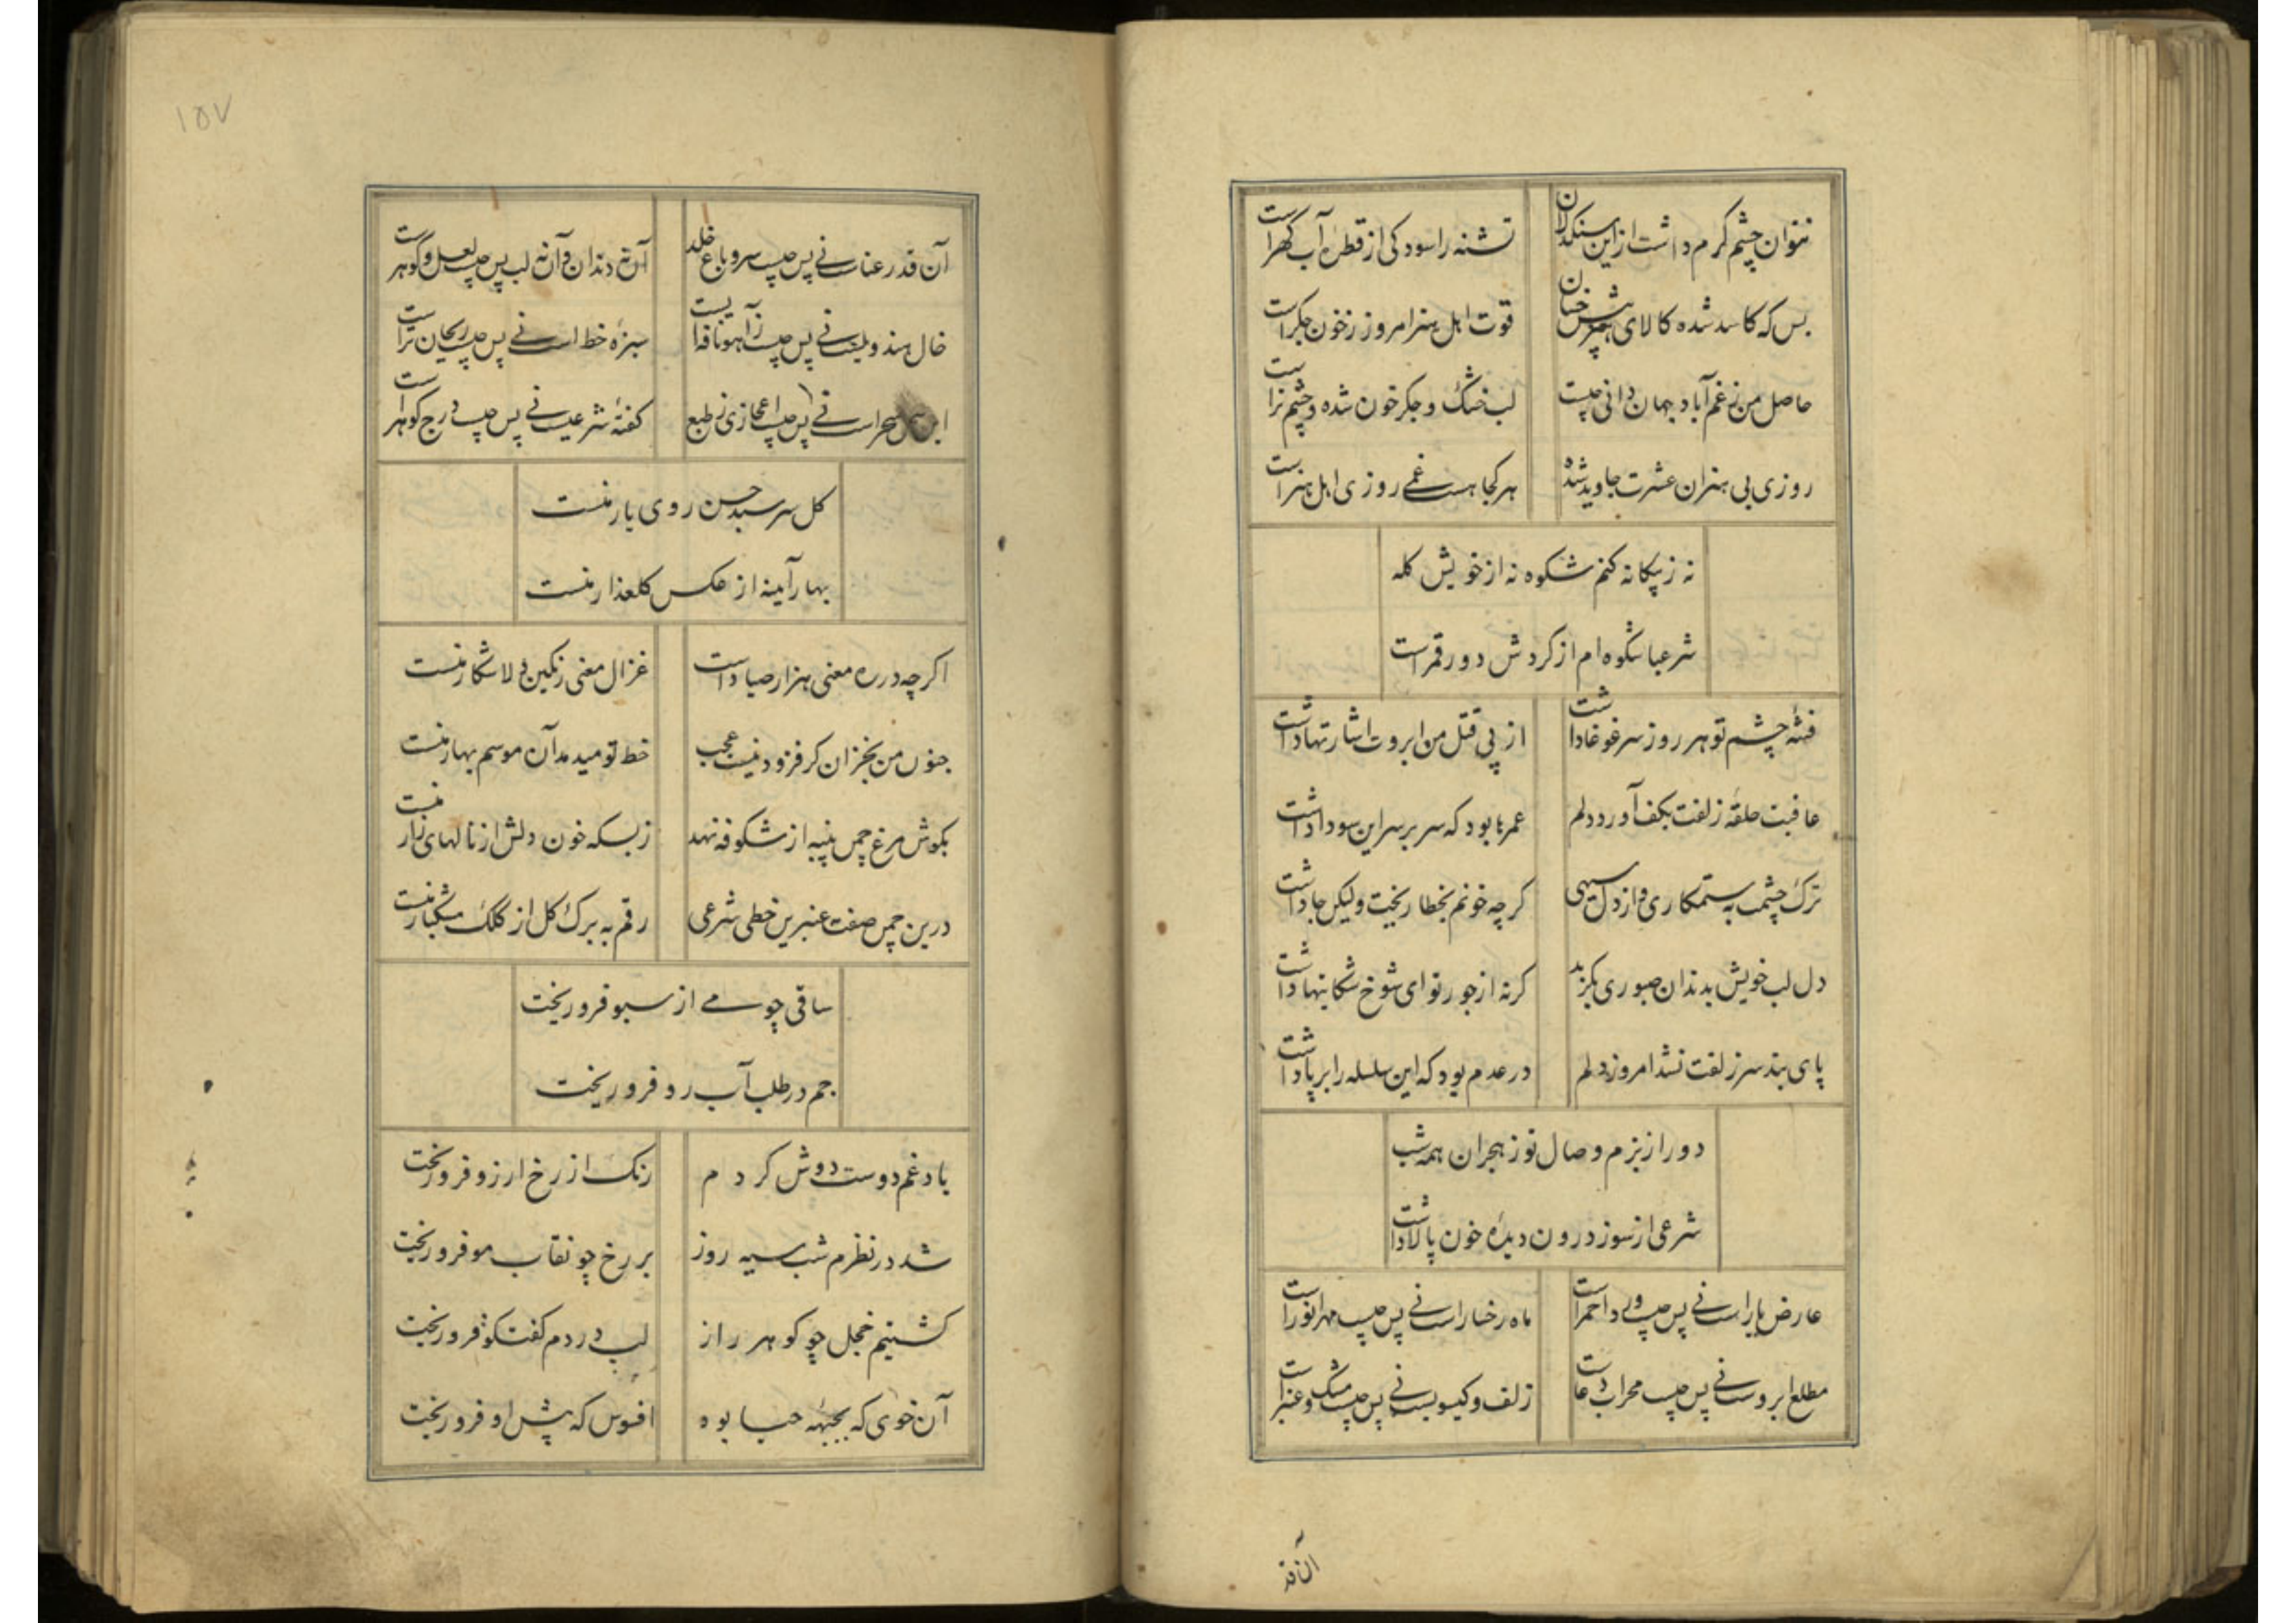 نتوان چشم کرم داشت ازین سنکدلان
تشنه را سود کی از قطره آب گهراست
بس که کاسد شده کالای هنرپیش خسان
قوت اهل هنر امروز ز خون جکراست
حاصل من ز غم آباد جهان دانی چیست
لب خشک و جکر خون شده و چشم تراست
روزی بی هنران عشرت جاوید شده
هر کجا هست غمی روزی اهل هنراست
نه ز بیکانه کنم شکوه نه از خویش کله
شرعیا شکوه ام از کردش دور قمراست
فتنهٔ چشم تو هر روز سر غوغا داشت
از پی قتل من ابروت اشارتها داشت
عاقبت حلقهٔ زلفت بکف آورد دلم
عمرها بود که سر بر سر این سودا داشت
ترک چشمت به ستمکاری و از دل سیهی
کرچه خونم بخطا ریخت ولیکن جا داشت
دل لب خویش بدندان صبوری بکزید
کرنه از جور تو ای شوخ شکایتها داشت
پای بند سر زلفت نشد امروز دلم
در عدم بود که این سلسله را بر پا داشت
دور از بزم وصال تو ز هجران همه شب
شرعی از سوز درون دیدهٔ خون پالا داشت
عارض یار است نی پس چیست ورد احمراست
ماه رخسار است نی پس چیست مهر انوراست
مطلع ابروست نی پس چیست محراب دعاست
زلف و کیسویست نی پس چیست مشک و عنبراست
آن قد
۱۵۷
آن قد رعناست نی پس چیست سرو باغ خلد
آن نه دندان و آن نه لب پس چیست لعل و گوهراست
خال هندویست نی پس چیست زآهو نافه ایست
سبزهٔ خط است نی پس چیست ریحان تراست
این سحر است نی پس چیست اعجازی ز طبع
کفتهٔ شرعیست نی پس چیست درج کوهراست
کل سر سبد حسن روی یار منست
بهار آینه از عکس کلعذار منست
اکرچه در ره معنی هزار صیاد است
غزال معنی رنکین ولا شکار منست
جنون من بخزان کر فزود نیست عجب
خط تو میدمد آن موسم بهار منست
بکوش مرغ چمن پنبه از شکوفه نهد
زبسکه خون دلش از نالهای زار منست
درین چمن صفت عنبرین خطی شرعی
رقم به برک کل از کلک مشکبار منست
ساقی چو می از سبو فرو ریخت
جم در طلب آب رو فرو ریخت
یاد غم دوست دوش کردم
رنک از رخ ارزو فرو ریخت
شد در نظرم شب سیه روز
بر رخ چو نقاب مو فرو ریخت
کشتیم خجل چو کوهر راز
لب در دم کفتکو فرو ریخت
آن خوی که بجبهه حیا بوه
افسوس که پیش او فرو ریخت